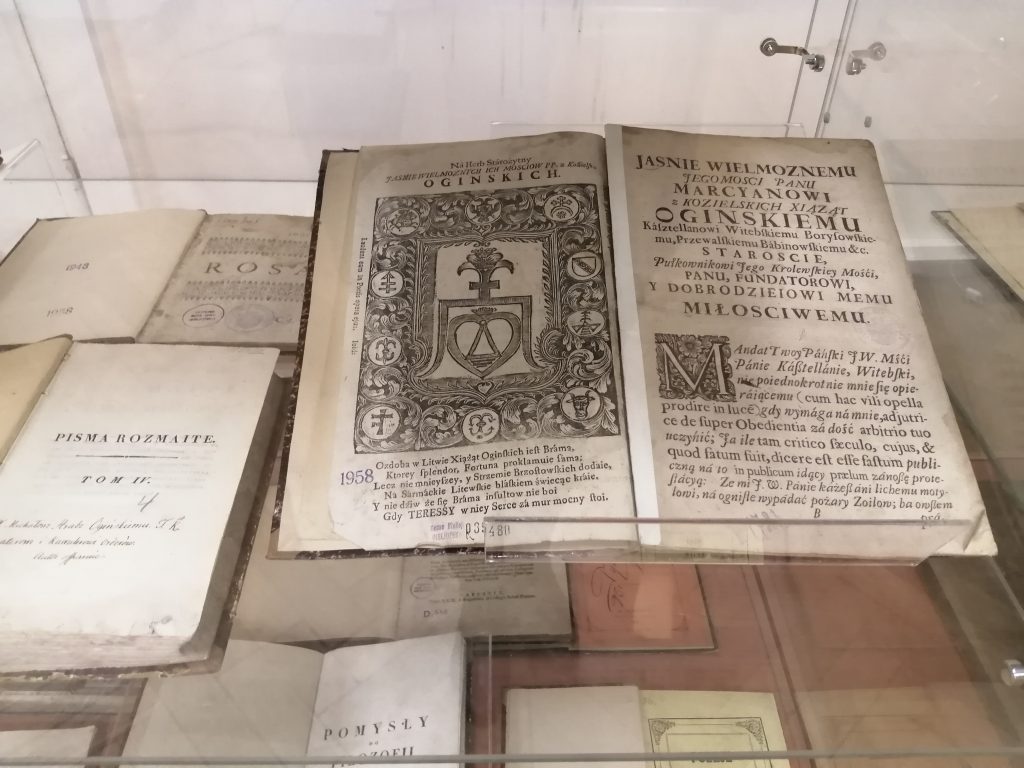 Ná Herb Stárożytny
JASNIE WIELMOZNYCH ICH MOSCIOW PP. z Kozielsk
OGINSKICH.
Ozdoba w Litwie Xiążąt Oginskich iest Bráma,
Ktorey splendor, Fortuna proklamuie fama;
Lecz nie mnieyszey, y Strzemie Brzostowskich dodaie,
Ná Sármáckie Litewskie bláskiem świecąc kráie.
Y nie dziw że się Brámá insultow nie boi
Gdy TERESSY w niey Serce zá mur mocny stoi.
1958
R 35480
JASNIE WIELMOZNEMU
JEGOMOSCI PANU
MARCYANOWI
z KOZIELSKICH XIĄZĄT
OGINSKIEMU
Kásztellanowi Witebskiemu Borysowskie-
mu, Przewalskiemu Bábinowskiemu &c.
STAROSCIE,
Pułkownikowi Jego Krolewskiey Mośći,
PANU, FUNDATOROWI,
Y DOBRODZIEIOWI MEMU
MIŁOSCIWEMU.
MAndat Twoy Páński J.W. Mśći
Pánie Kásztellánie, Witebski,
nie poiednokrotnie mnie się opie-
ráiącemu (cum hac vili opella
prodire in lucē) gdy wymága ná mnie, adjutri-
ce de super Obedientia zá dość arbitrio tuo
uczyńić; Ja ile tam critico sæculo, cujus, &
quod fatum fuit, dicere est esse fastum publi-
czną ná to in publicum idący prælum zánoszę prote-
stácyą: Ze mi J. W. Pánie każesz áni lichemu moty-
lowi, ná ogniste wypádáć pożary Zoilow; ba owszem
B
1948
1958
ROSA
PISMA ROZMAITE.
TOM IV.
4
D.
POMYSŁY
DO
FILOZOFII
POEZJE